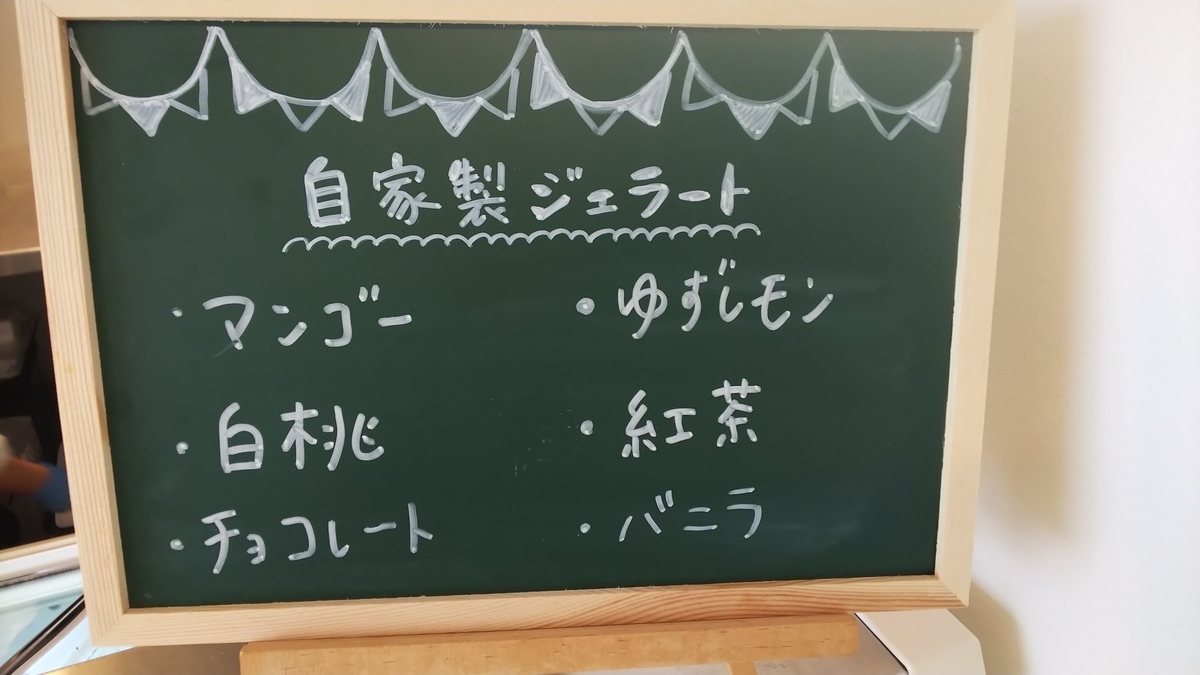 自家製ジェラート
・マンゴー
・ゆずレモン
・白桃
・紅茶
・チョコレート
・バニラ